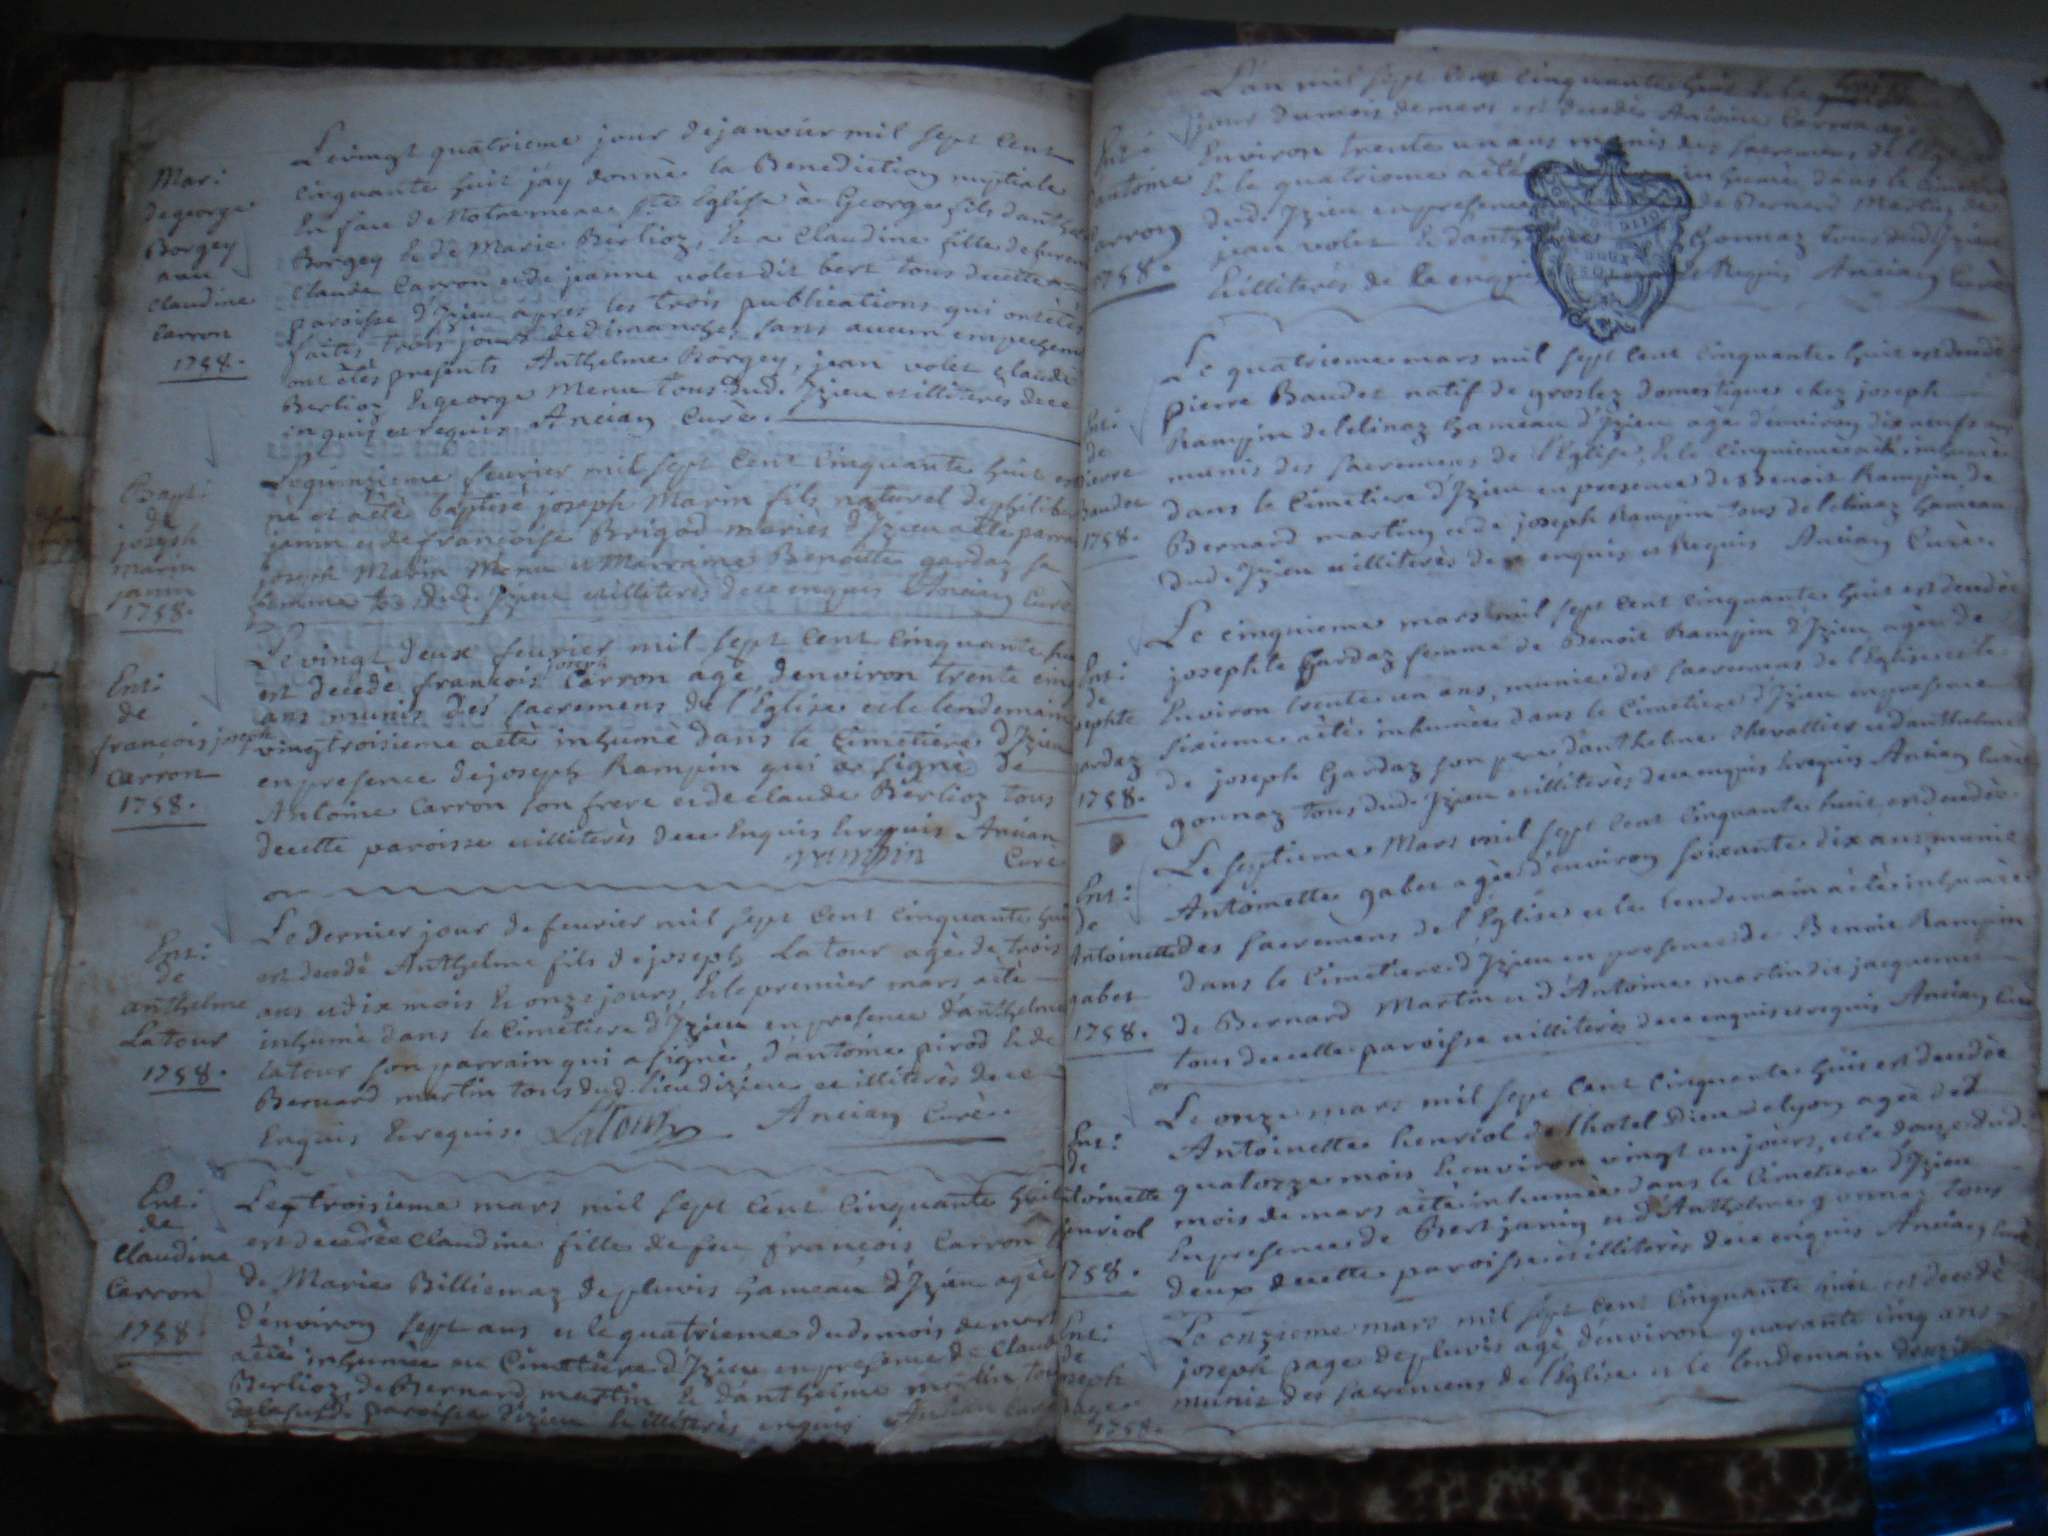 Mar:
de george
Borgey
avec
Claudine
Carron
1758.
Le vingt quatrieme jour de janvier mil sept cent
cinquante huit j'ay donnè la Benediction nuptiale
En face de Notre mere Ste Eglise à George fils d'anthelme
Borgey et de Marie Berlioz, et a Claudine fille de
Claude Carron et de jeanne volet dit bert tous de cette
paroisse d'Izieu apres les trois publications qui ont étés
faites trois jours de dimanches sans aucun empechem
ont étés presents Anthelme Borgey, jean volet Claude
Berlioz et george Menu tous dud. Izieu et illiterès de ce
inquis et requis Ancian Curè.
Bapt:
de
joseph
marin
janin
1758.
Le quinzieme fevrier mil sept cent cinquante huit est
né et a étè baptisé joseph Marin fils naturel de philibe
janin et de françoise Brigod mariès d'Izieu a étè parra
joseph Marin Menu et Marraine Benoite gardaz sa
femme to. dud. Izieu et illiterès de ce enquis Ancian Curè
Ent:
de
françois joseph
Carron
1758.
Le vingt deux fevrier mil sept cent cinquante hu
est decede françois joseph Carron agè d'environ trente cinq
ans munis dés sacremens de l'Eglise et le lendemain
vingtroisieme a étè inhumè dans le Cimetiere d'Izieu
en presence de joseph Rampin qui a signè de
Antoine Carron son frere et de claude Berlioz tous
de cette paroisse et illiterès de ce Enquis et requis Ancian
rempin Curè
Ent:
de
anthelme
Latour
1758.
Le dernier jour de fevrier mil sept cent cinquante hui
est decedè Anthelme fils de joseph Latour agè de trois
ans et dix mois et onze jours, et le premier mars a étè
inhumè dans le Cimetiere d'Izieu en presence d'anthelme
latour son parrain qui a signè, d'antoine pirod et de
Bernard martin tous dud. lieu d'izieu et illiterès de ce
Enquis et requis. Latour Ancian Curè.
Ent:
de
Claudine
Carron
1758.
Le troisieme mars mil sept cent cinquante huit
est decedèe Claudine fille de feu françois Carron
de Marie Billiemaz de pluvis hameau d'Izieu agèe
d'environ sept ans et le quatrieme dud. mois de mars
a étè inhumèe au Cimetiere d'Izieu en presence de Claude
Berlioz, de Bernard martin et d'anthelme martin tous
de la susd. paroisse d'izieu et illiterès enquis Ancian curè
Ent:
antoine
Carron
1758.
L'an mil sept cent cinquante huit et le
jour du mois de mars est decedè Antoine Carron agè
Environ trente un ans munis des sacremens de l'Eglise
et le quatrieme a étè inhumè dans le Cimetiere
dud. Izieu en presence de Bernard Martin de
jean volet et d'anthelme Gonnaz tous dud Izieu
et illiterès de ce enquis et Requis Ancian Curè
Ent:
de
pierre
Baudet
1758.
Le quatrieme mars mil sept cent cinquante huit est decedè
pierre Baudet natif de groslez domestique chez joseph
Rampin de lelinaz hameau d'Izieu agè d'environ dix neufs ans
munis des sacremens de l'Eglise, et le cinquieme a étè inhumè
dans le Cimetiere d'Izieu en presence de Benoit Rampin de
Bernard martin et de joseph Rampin tous de lelinaz hameau
dud. Izieu et illiterès de ce enquis et Requis Ancian Curè.
Ent:
de
josephte
gardaz
1758.
Le cinquieme mars mil sept cent cinquante huit est decedèe
josephte Gardaz femme de Benoit Rampin d'Izieu agèe de
Environ trente un ans, munie des sacremens de l'Eglise et le
sixieme a étè inhumèe dans le Cimetiere d'Izieu en presence
de joseph Gardaz son pere d'anthelme Chevallier et d'anthelme
gonnaz tous dud. Izieu et illiterès de ce enquis et requis Ancian Curè
Ent:
de
Antoinette
gabet
1758.
Le septieme Mars mil sept cent cinquante huit est decedèe
Antoinette gabet agèe d'environ soixante dix ans munie
des sacremens de l'Eglise et le lendemain a étè inhumèe
dans le Cimetiere d'Izieu en presence de Benoit Rampin
de Bernard Martin et d'Antoine martin dit jacquemet
tous de cette paroisse et illiterès de ce enquis et requis Ancian Curè
Ent:
de
Antoinette
henriol
1758.
Le onze mars mil sept cent cinquante huit est decedèe
Antoinette henriol de l'hotel Dieu de lyon agèe de
quatorze mois et environ vingt un jours, et le douze dud.
mois de mars a étè inhumèe dans le Cimetiere d'Izieu
En presence de Bert janin et d'Anthelme gonnaz tous
deux de cette paroisse et illiterès de ce enquis Ancian Curè
Ent:
de
joseph
page
1758.
Le onzieme mars mil sept cent cinquante huit est decedè
joseph page de pluvis agè d'environ quarante cinq ans
munis des sacremens de l'Eglise et le lendemain douzi